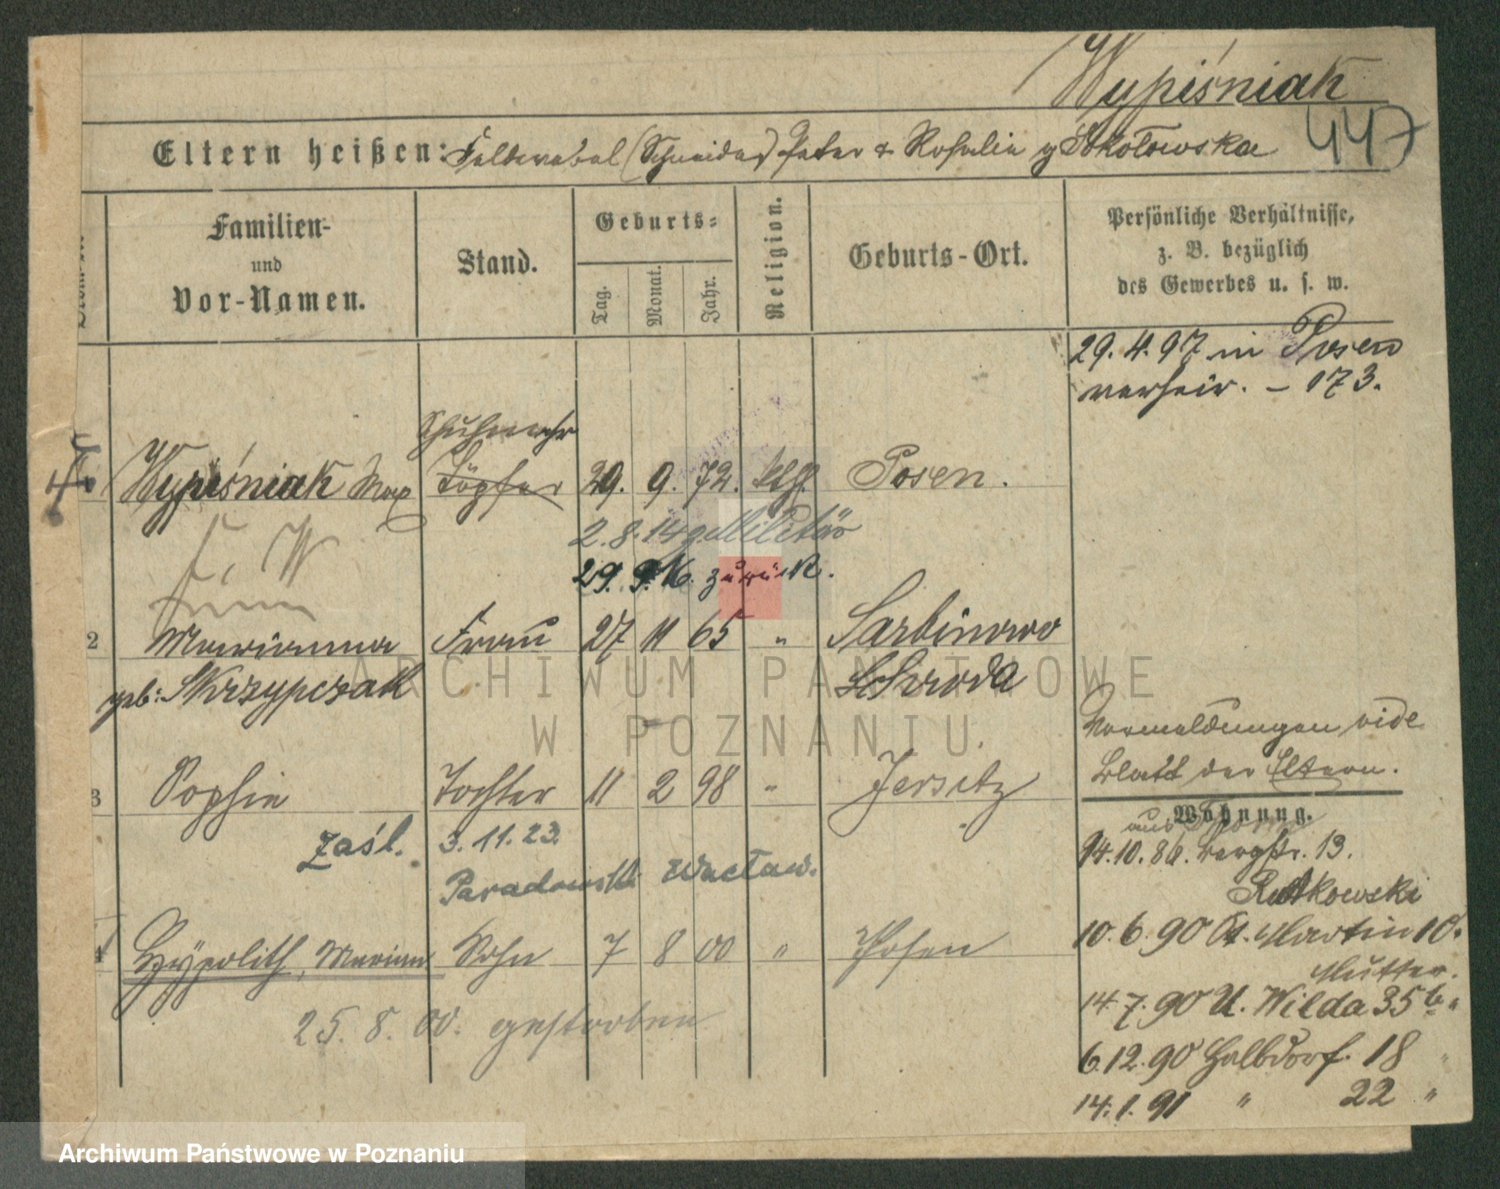 Wypiśniak
447
Eltern heißen: Feldwebel (Schneider) Peter & Rosalie g Sokołowska
Familien-
und
Vor-Namen.
Stand.
Geburts-
Tag.
Monat.
Jahr.
Religion.
Geburts-Ort.
Persönliche Verhältnisse,
z. B. bezüglich
des Gewerbes u. s. w.
29.4.97 in Posen
verheir. - 173.
Schuhmachr
Wypiśniak Max Töpfer 29. 9. 72. ktl. Posen.
2.8.14 z. Militär
29. 9. 16. zurück.
2 Marianna Frau 27 11 65 " Sarbinowo
geb: Skrzypczak Schroda
Vormeldungen vide
Blatt der Eltern.
3 Sophie Tochter 11 2 98 " Jersitz
Wohnung.
zaśl. 3.11.23.
aus Thorn
14.10.86. Bergstr. 13.
Paradowski Wacław.
Rutkowski
4 Hypolith, Marian Sohn 7 8 00 " Posen
10.6.90 St. Martin 10.
Mutter.
25.8.00. gestorben
14.7.90 U. Wilda 35b "
6.12.90 Halbdorf. 18 "
14.1.91 " 22 "
ARCHIWUM PAŃSTWOWE
W POZNANIU
Archiwum Państwowe w Poznaniu